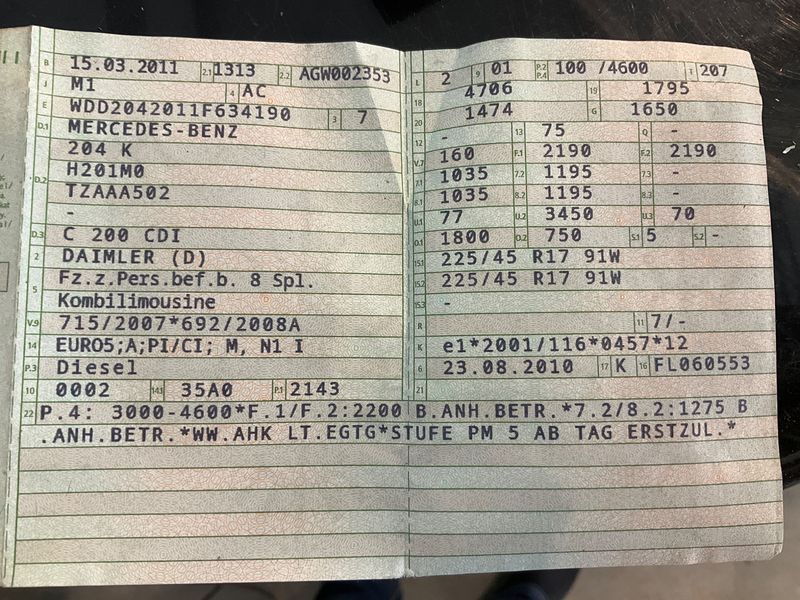 B 15.03.2011 2.1 1313 2.2 AGW002353
J M1 4 AC
E WDD2042011F634190 3 7
D.1 MERCEDES-BENZ
204 K
D.2 H201M0
TZAAA502
-
D.3 C 200 CDI
2 DAIMLER (D)
5 Fz.z.Pers.bef.b. 8 Spl.
Kombilimousine
V.9 715/2007*692/2008A
14 EURO5;A;PI/CI; M, N1 I
P.3 Diesel
10 0002 14.1 35A0 P.1 2143
L 2 9 01 P.2 P.4 100 /4600 T 207
18 4706 19 1795
20 1474 G 1650
12 - 13 75 Q -
V.7 160 F.1 2190 F.2 2190
7.1 1035 7.2 1195 7.3 -
8.1 1035 8.2 1195 8.3 -
U.1 77 U.2 3450 U.3 70
O.1 1800 O.2 750 S.1 5 S.2 -
15.1 225/45 R17 91W
15.2 225/45 R17 91W
15.3 -
R 11 7/-
K e1*2001/116*0457*12
6 23.08.2010 17 K 16 FL060553
21
22 P.4: 3000-4600*F.1/F.2:2200 B.ANH.BETR.*7.2/8.2:1275 B
.ANH.BETR.*WW.AHK LT.EGTG*STUFE PM 5 AB TAG ERSTZUL.*